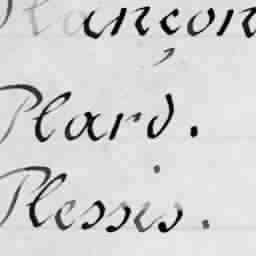 Plançon
Plard.
Plessis.